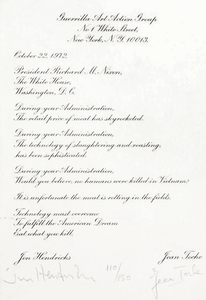 Guerrilla Art Action Group
No 1 White Street,
New York, N.Y. 10013.
October 22, 1972
President Richard M. Nixon,
The White House,
Washington, D.C.
During your Administration,
The retail price of meat has skyrocketed.
During your Administration,
The technology of slaughtering and roasting,
has been sophisticated.
During your Administration,
Would you believe, no humans were killed in Vietnam?
It is unfortunate the meat is rotting in the fields.
Technology must overcome
To fulfill the American Dream
Eat what you kill.
Jon Hendricks Jean Toche
Jon Hendricks /150 Jean Toche